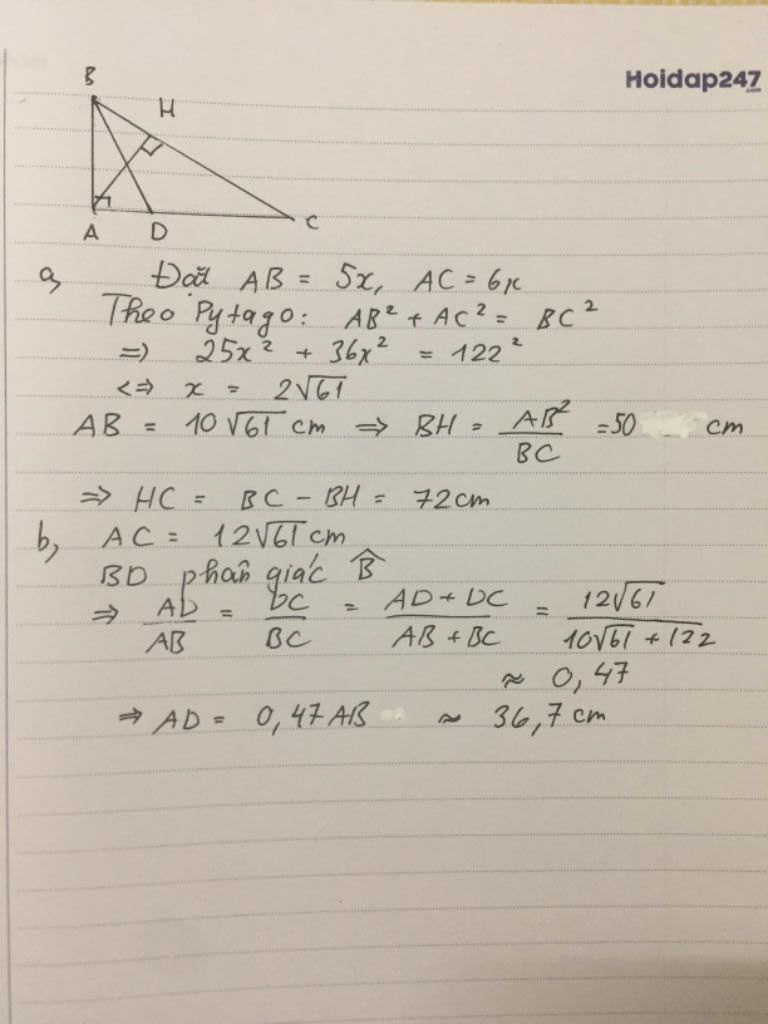 Hoidap247
.com
B
H
A D C
a, Đặt AB = 5x, AC = 6x
Theo Pytago: AB² + AC² = BC²
=> 25x² + 36x² = 122²
<=> x = 2√61
AB = 10√61 cm => BH = AB²/BC = 50 cm
=> HC = BC - BH = 72cm
b, AC = 12√61 cm
BD phân giác B̂
=> AD/AB = DC/BC = (AD + DC)/(AB + BC) = 12√61/(10√61 + 122)
≈ 0,47
=> AD = 0,47AB ≈ 36,7 cm